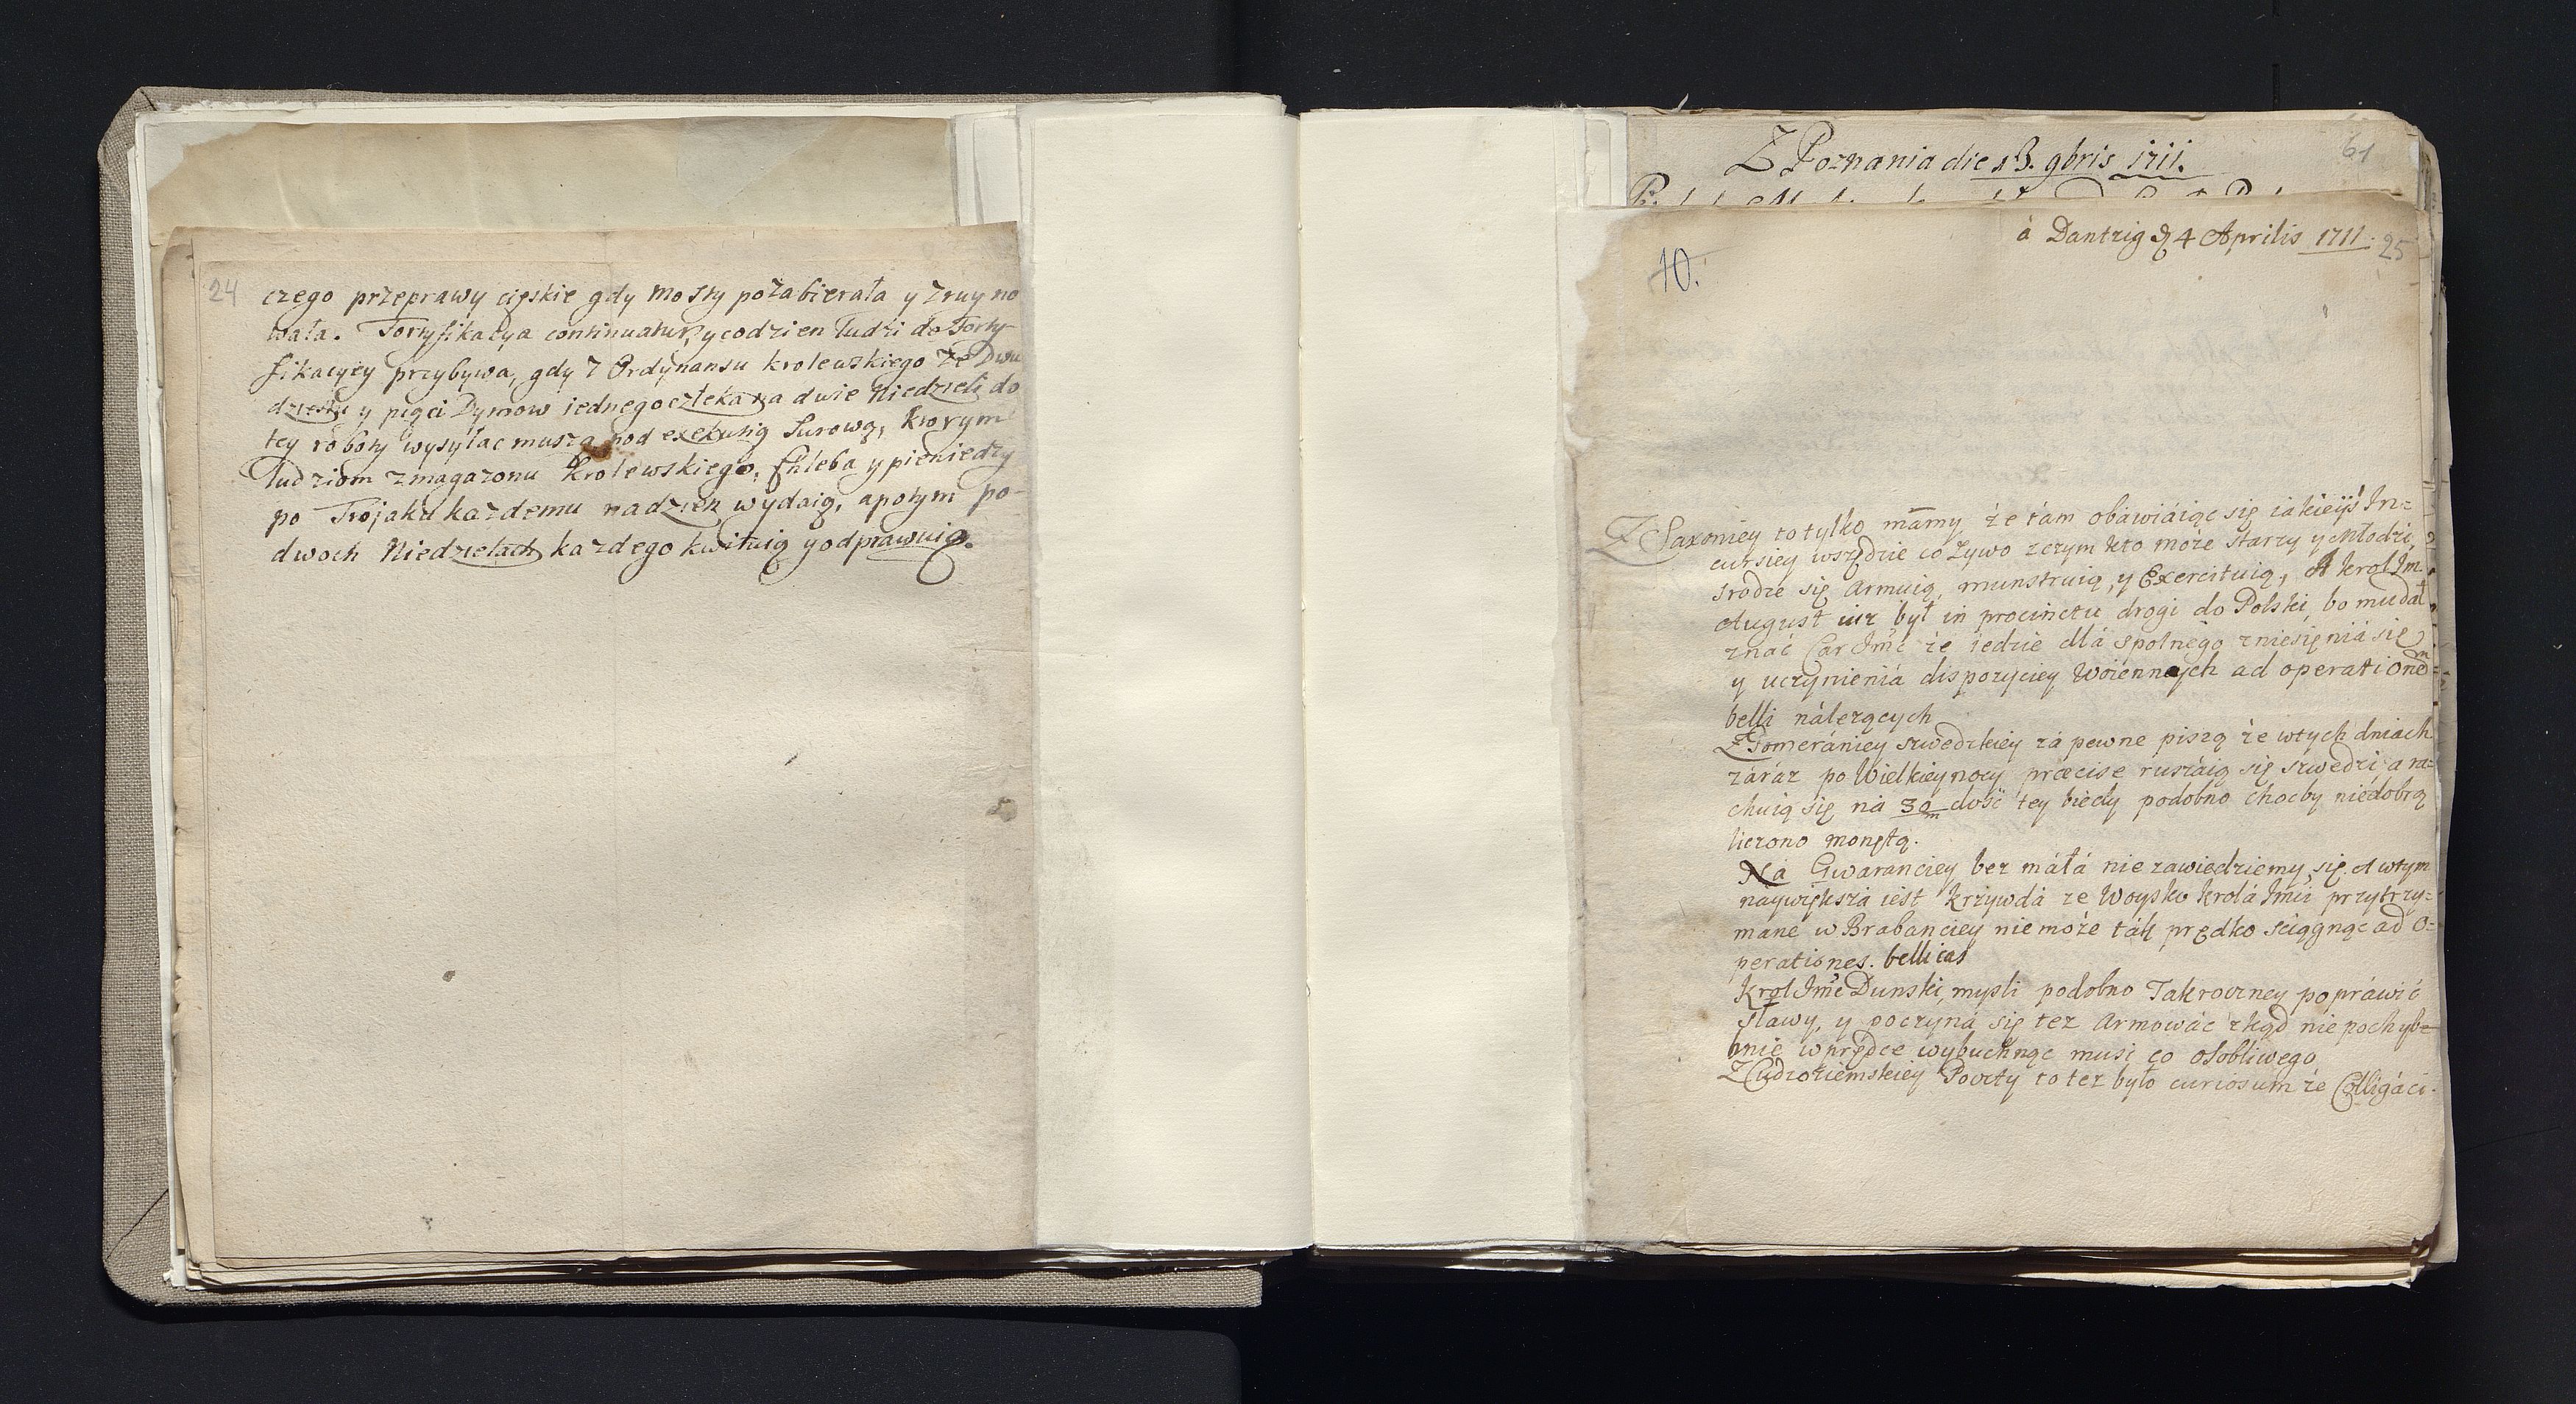 24
czego przeprawy cięskie gdy Mosty pozabierała y zruyno
wała. Fortyfikacya continuatur, y codzien ludzi do Forty-
fikacyey przybywa, gdy z Ordynansu krolewskiego ze Dwu
dziestu y pięci Dymow iednego człeka na dwie Niedzieli do
tey roboty wysyłac muszą pod exekutią surową, ktorym
ludziom z magazonu Krolewskiego, Chleba y pieniedzy
po Trojaku kazdemu nadzien wydaią, apotym po-
dwoch Niedzielach kazdego kwituią y odprawuią.
61
Z Poznania die 13. 9bris 1711.
à Dantzig d 4 Aprilis 1711.
25
10.
Z Saxoniey to tylko mamy że tam obawiáiąc się iakieyś In=
cursiey wszędzie co żywo zczym kto może starzy y Młodzi,
srodze się armuią, munstruią, y Exercituią, A krol Jm
August iuz był in procinctu drogi do Polski, bo mu dał
znáć Car Jmć że iedzie dlá spolnego zniesięniá się
y uczynieniá dispozyciey Woiennych ad operationem
belli nálezących
Z Pomerániey szwedzkiey zá pewne piszą że wtych dniach
záráz po Wielkieynocy præcise ruszáią się szwedzi a ra=
chuią się ná 30m dość tey biedy podobno choćby niedobrą
liczono monętą.
Ná Gwaranciey bez máłá nie zawiedziemy się. A wtym
naywiększa iest krzywdá ze Woysko krolá Jmći przytrzy=
mane w Brabanciey nie może ták prędko sciągnąc ad o=
perationes. bellicas
Krol Jmć Dunski, mysli podobno Takroczney popráwić
sławy, y poczyná się tez armowác zkąd nie pochyb=
nie wprędce wybuchnąc musi co osobliwego
Z Cudzoziemskiey Poczty to tez było curiosum że Colligáci